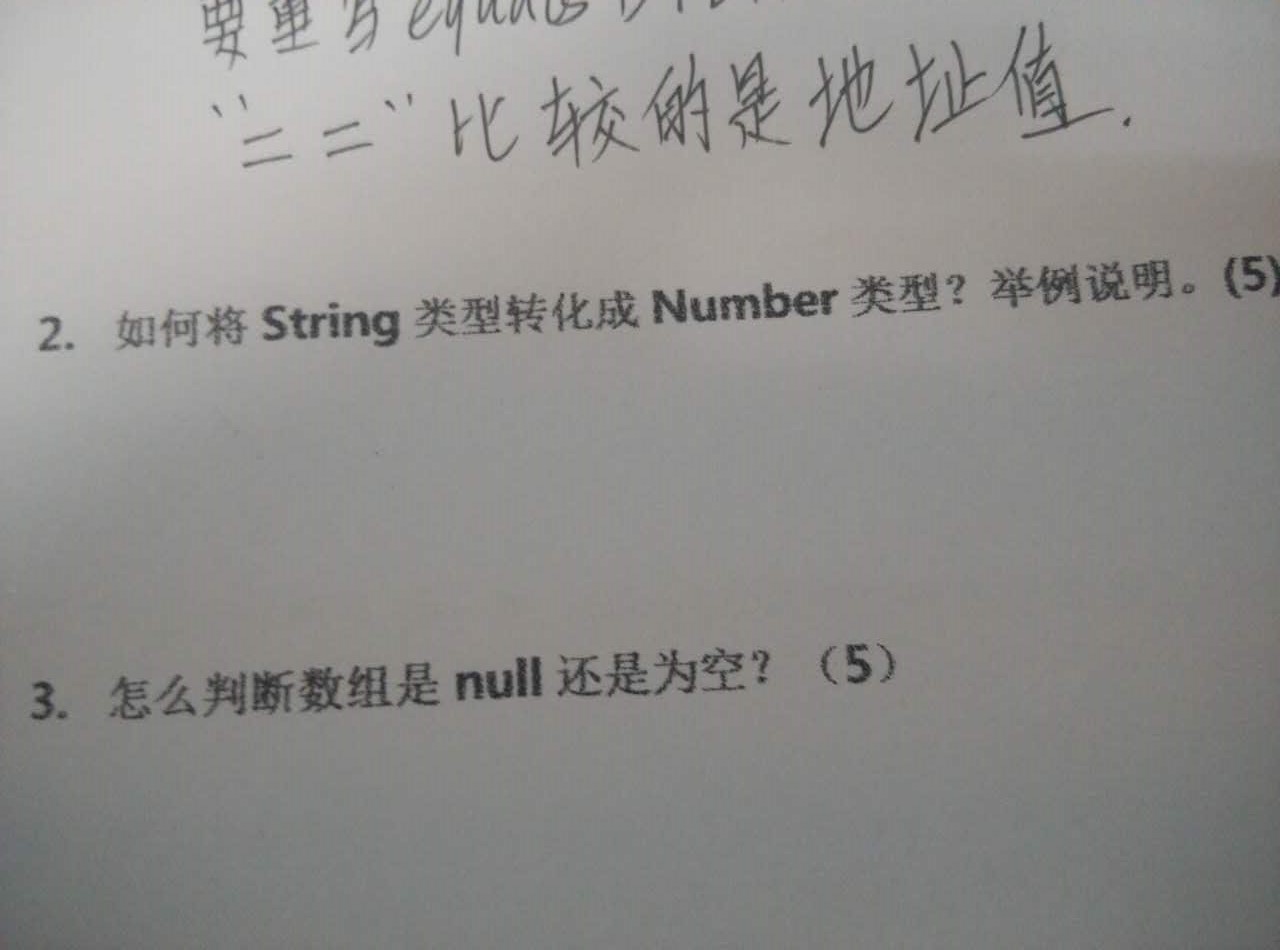 要重写equals
"==" 比较的是地址值.
2. 如何将 String 类型转化成 Number 类型？举例说明。(5)
3. 怎么判断数组是 null 还是为空？（5）